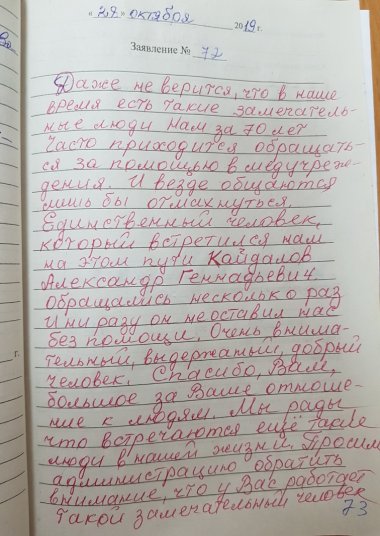 « 29 » октября 2019 г.
Заявление № 72
Даже не верится, что в наше
время есть такие замечатель-
ные люди Нам за 70 лет
Часто приходится обращать-
ся за помощью в медучреж-
дения. И везде общаются
лишь бы отмахнуться.
Единственный человек,
который встретился нам
на этом пути Кайданов
Александр Геннадьевич
обращались несколько раз
И ни разу он не оставил нас
без помощи. Очень внима-
тельный, выдержаный, добрый
человек. Спасибо, Вам,
большое за Ваше отноше-
ние к людям. Мы рады
что встречаются ещё такие
люди в нашей жизни. Просим
администрацию обратить
внимание, что у Вас работает
такой замечательный человек
73
г.